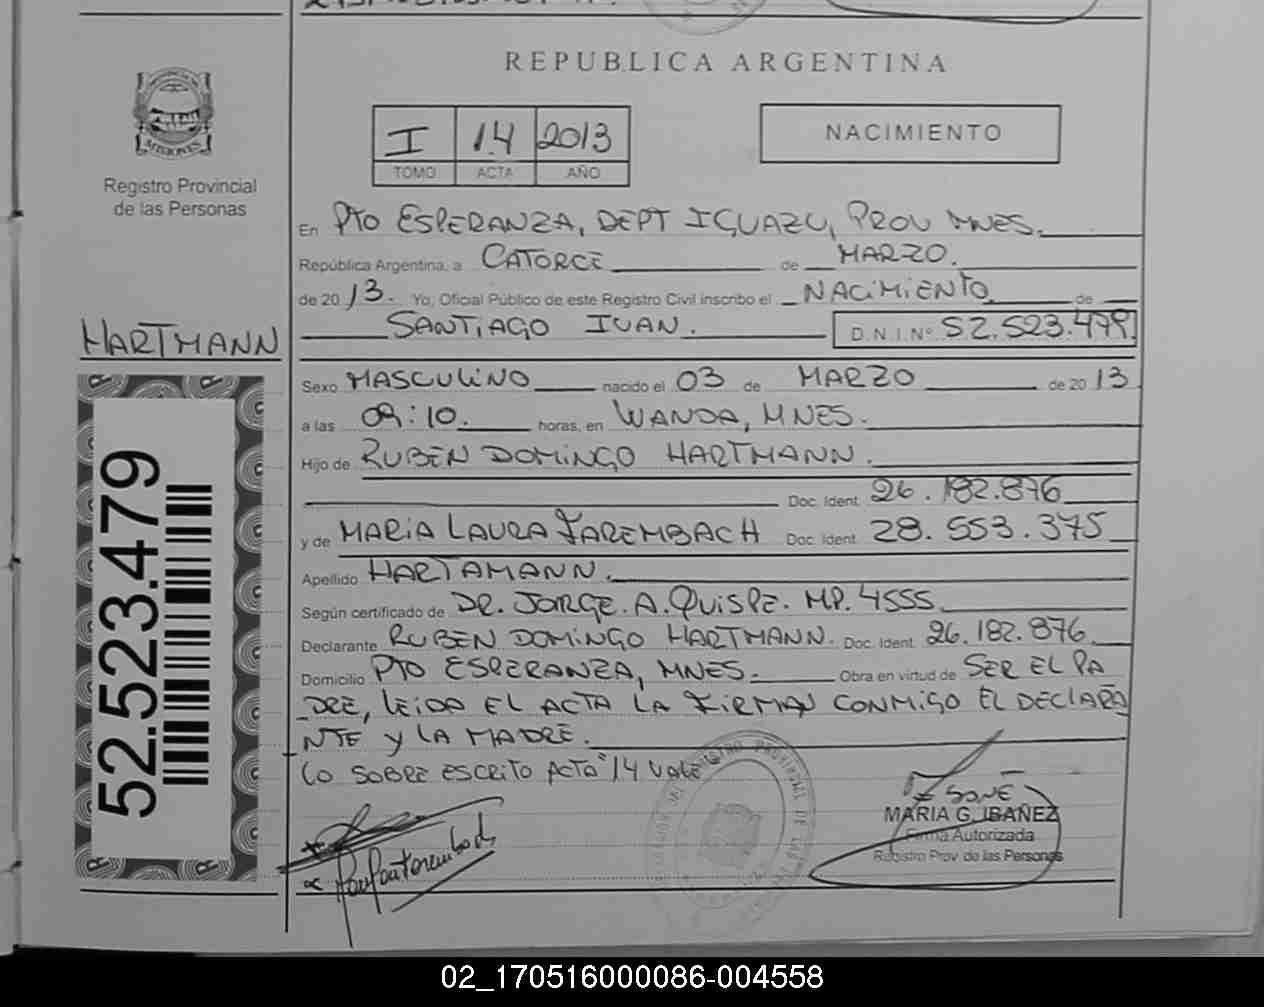 REPUBLICA ARGENTINA
MISIONES
Registro Provincial
de las Personas
I 14 2013
TOMO ACTA AÑO
NACIMIENTO
En PTO ESPERANZA, DEPT IGUAZU, PROV MNES.
República Argentina, a CATORCE de MARZO.
de 2013. Yo, Oficial Público de este Registro Civil inscribo el NACIMIENTO de
SANTIAGO IVAN. D.N.I. Nº 52.523.479
HARTMANN
Sexo MASCULINO nacido el 03 de MARZO de 2013
a las 09:10. horas, en WANDA, MNES.
Hijo de RUBEN DOMINGO HARTMANN.
Doc. Ident. 26.182.876
y de MARIA LAURA FAREMBACH Doc. Ident. 28.553.375
Apellido HARTAMANN.
Según certificado de DR. JORGE. A. QUISPE. MP. 4555
Declarante RUBEN DOMINGO HARTMANN. Doc. Ident. 26.182.876
Domicilio PTO ESPERANZA, MNES. Obra en virtud de SER EL PA
DRE, LEIDA EL ACTA LA FIRMAN CONMIGO EL DECLARA
NTE Y LA MADRE.
LO SOBRE ESCRITO ACTA "14 VALE
52.523.479
MARIA G. IBAÑEZ
Firma Autorizada
Registro Prov. de las Personas
02_170516000086-004558